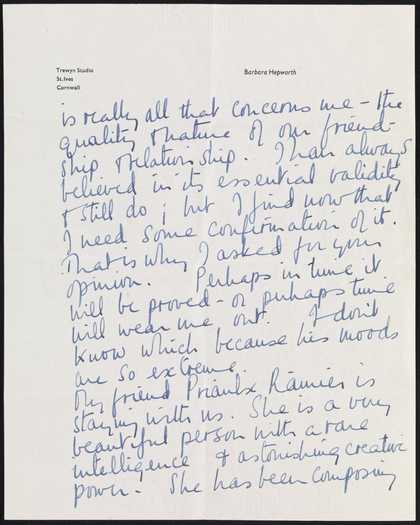 Trewyn Studio
St. Ives
Cornwall
Barbara Hepworth
is really all that concerns me – the
quality & nature of our friend-
ship & relationship. I have always
believed in its essential validity
& still do; but I find now that
I need some confirmation of it.
That is why I asked for your
opinion. Perhaps in time it
will be proved – or perhaps time
will wear me out. I don't
know which because his moods
are so extreme.
My friend Priaulx Rainier is
staying with us. She is a very
beautiful person with a rare
intelligence & astonishing creative
power. She has been composing